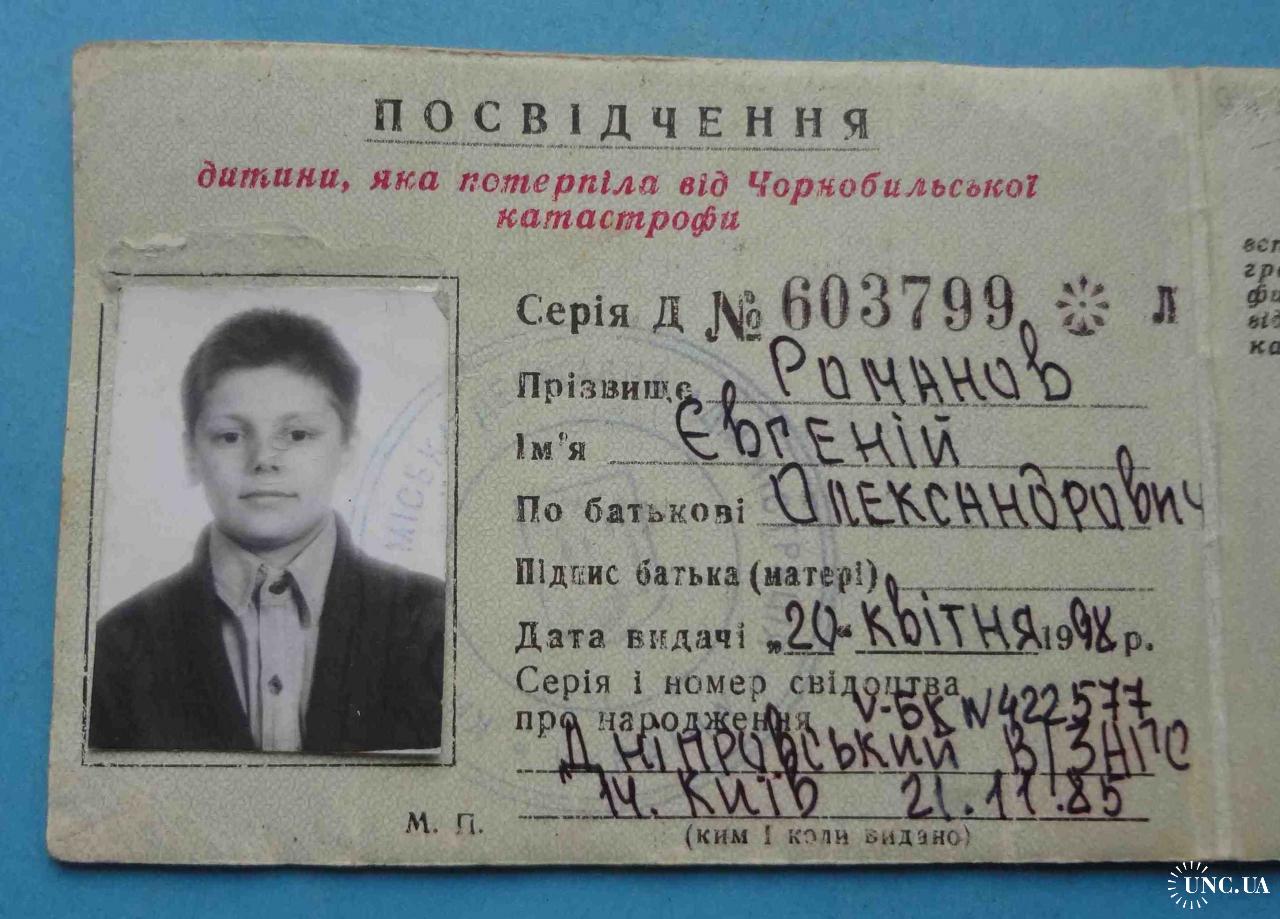 ПОСВІДЧЕННЯ
дитини, яка потерпіла від Чорнобильської
катастрофи
Серія Д № 603799 Л
Прізвище Романов
Ім'я Євгеній
По батькові Олександрович
Підпис батька (матері)
Дата видачі „20" квітня 1998 р.
Серія і номер свідоцтва
про народження V-БК N 422577
Дніпровський
м. Київ 21.11.85
(ким і коли видано)
М. П.
МІСЬКА
UNC.UA